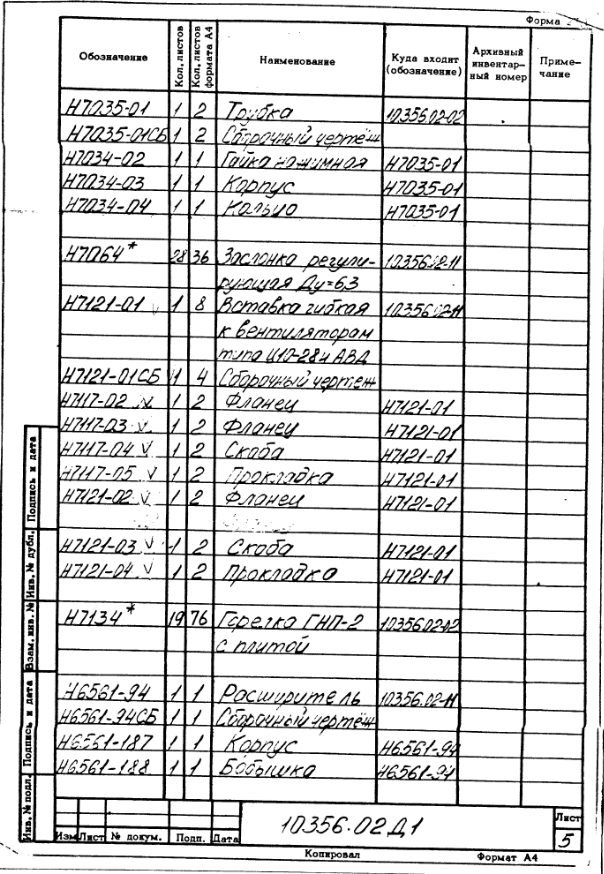 Форма
Обозначение Кол. листов Кол. листов формата А4 Наименование Куда входит (обозначение) Архивный инвентарный номер Примечание
Н7035-01 1 2 Трубка 10356.02-02
Н7035-01СБ 1 2 Сборочный чертёж
Н7034-02 1 1 Гайка нажимная Н7035-01
Н7034-03 1 1 Корпус Н7035-01
Н7034-04 1 1 Кольцо Н7035-01
Н7064* 28 36 Заслонка регули- 10356.02-11
рующая Ду=63
Н7121-01 V 1 8 Вставка гибкая 10356.02-11
к вентиляторам
типа Ц10-28 и АВД
Н7121-01СБ 1 4 Сборочный чертеж
Н7117-02 V 1 2 Фланец Н7121-01
Н7117-03 V 1 2 Фланец Н7121-01
Н7117-04 V 1 2 Скоба Н7121-01
Н7117-05 V 1 2 Прокладка Н7121-01
Н7121-02 V 1 2 Фланец Н7121-01
Н7121-03 V 1 2 Скоба Н7121-01
Н7121-04 V 1 2 Прокладка Н7121-01
Н7134* 19 76 Горелка ГНП-2 10356.02-02
с плитой
Н6561-94 1 1 Расширитель 10356.02-11
Н6561-94СБ 1 1 Сборочный чертёж
Н6561-187 1 1 Корпус Н6561-94
Н6561-188 1 1 Бобышка Н6561-94
Инв. № подл. Подпись и дата Взам. инв. № Инв. № дубл. Подпись и дата
10356.02Д1
Лист
5
Изм Лист № докум. Подп. Дата
Копировал Формат А4